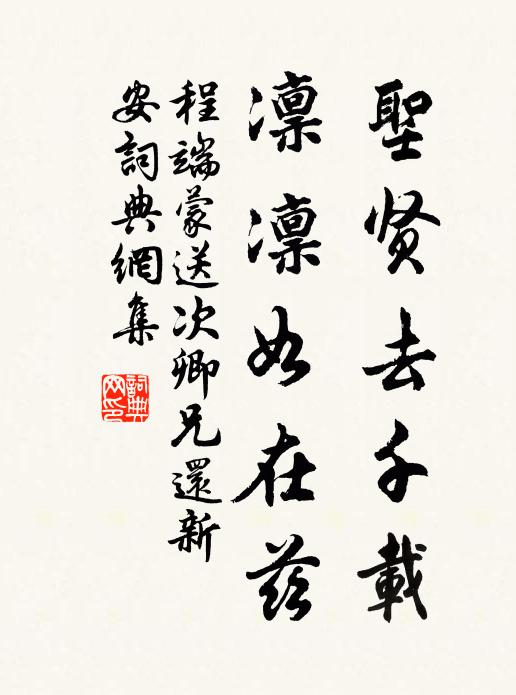 聖贤去千載
凛凛如在茲
程端蒙送次卿兄還新
安詞典網集
詞典网印